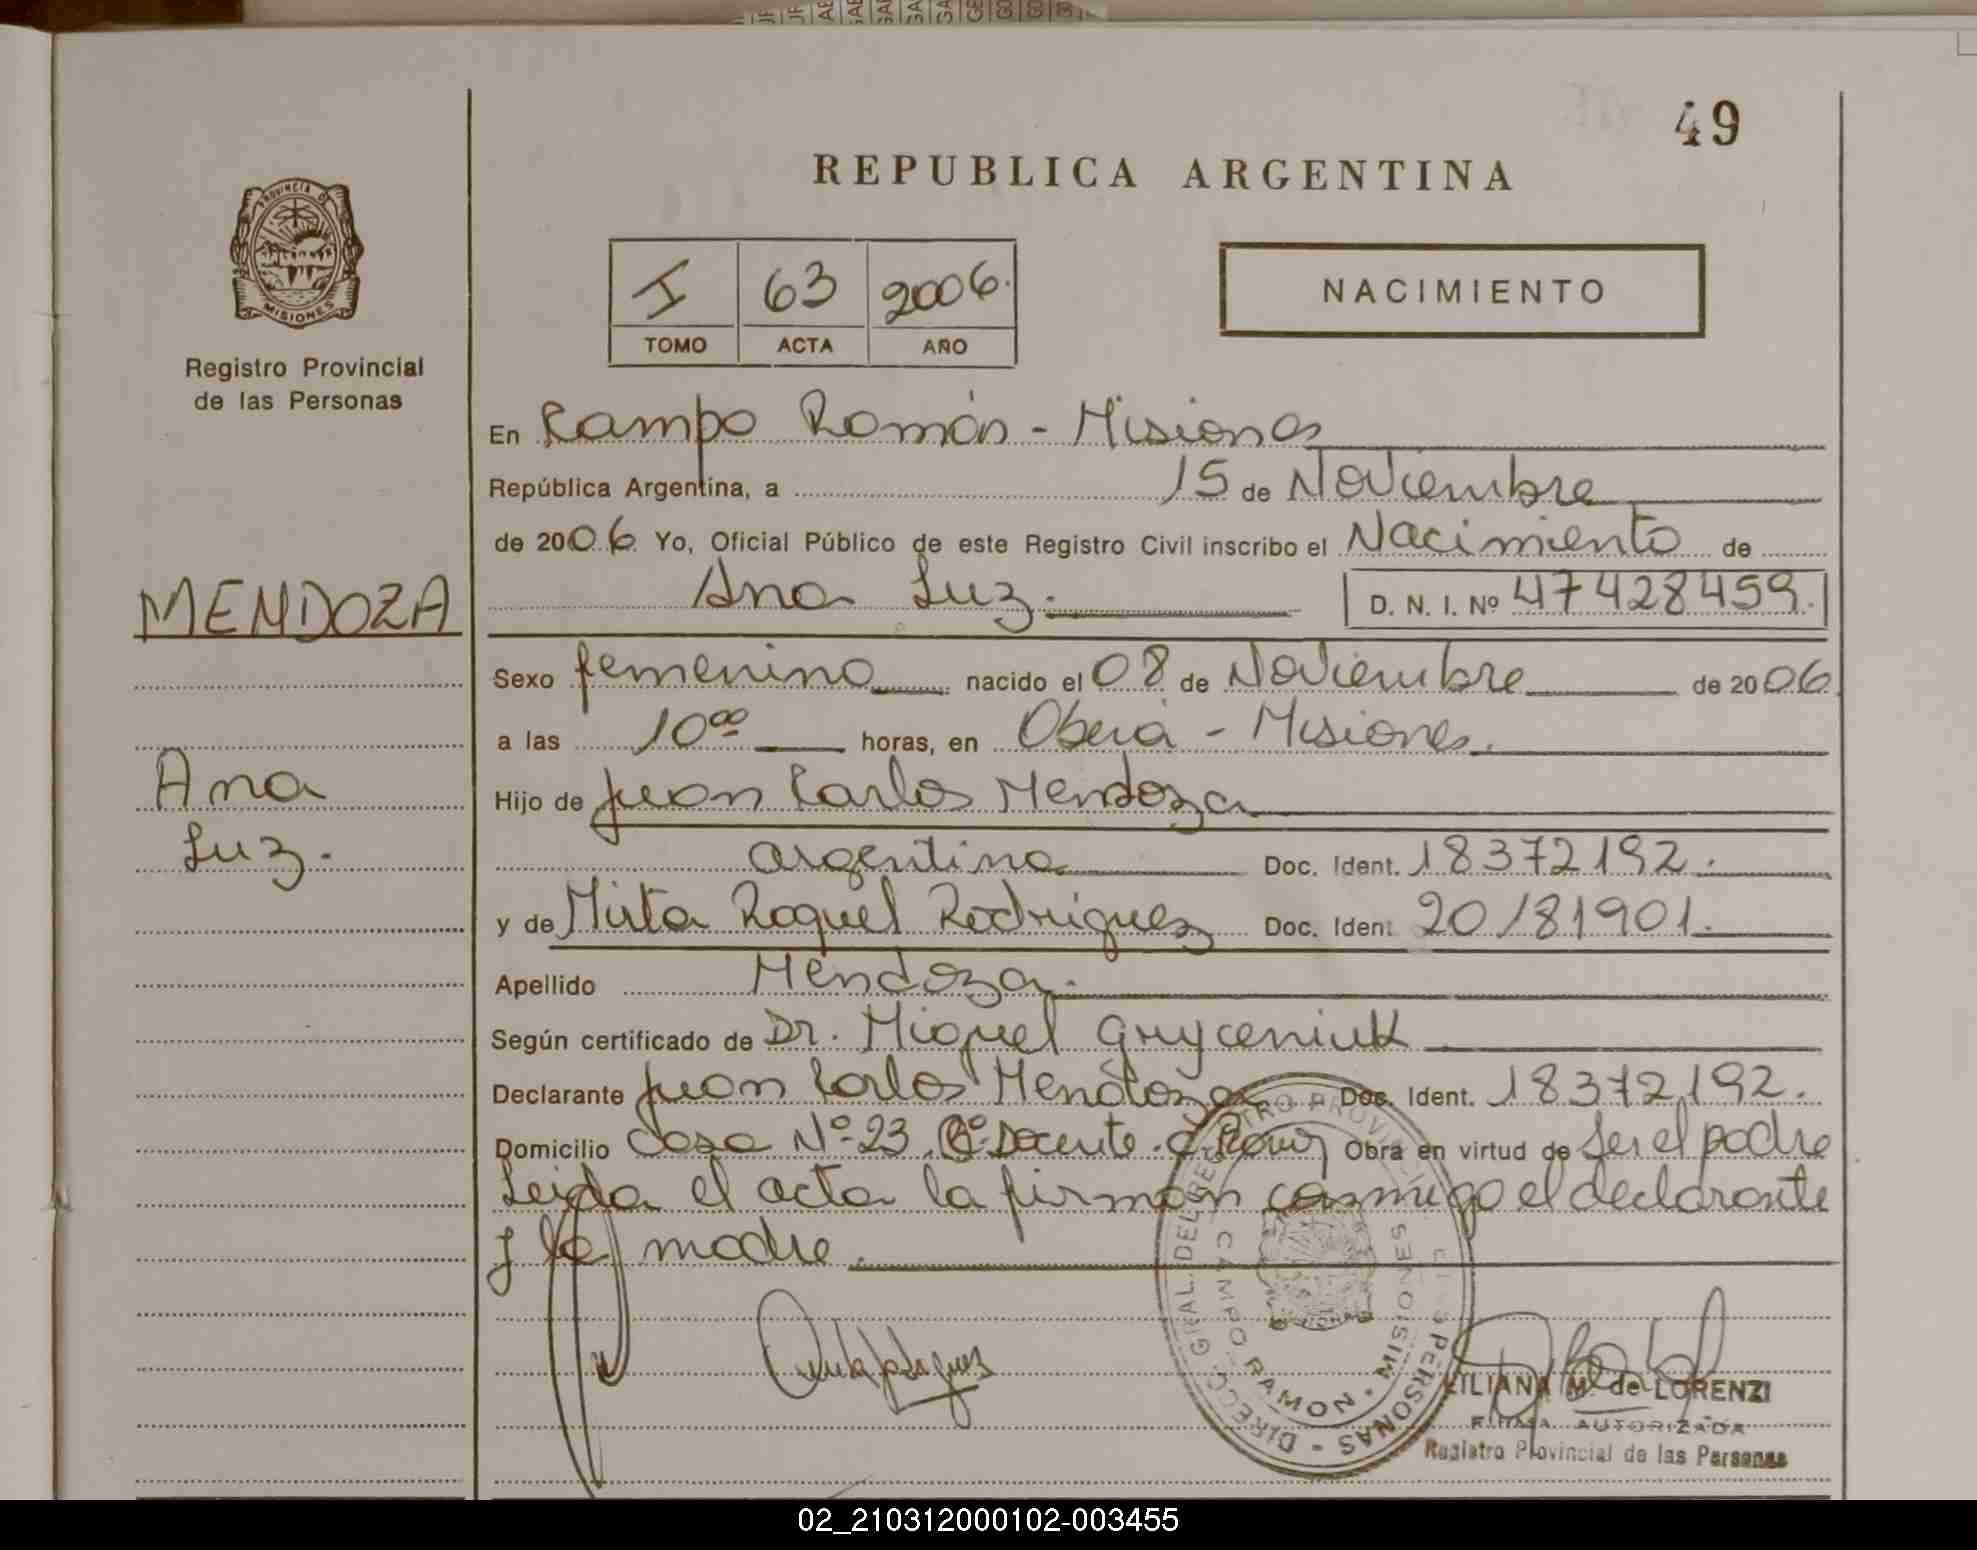 49
REPUBLICA ARGENTINA
PROVINCIA D
MISIONES
Registro Provincial
de las Personas
I 63 2006.
TOMO ACTA AÑO
NACIMIENTO
En Campo Ramón - Misiones
República Argentina, a 15 de Noviembre
de 2006 Yo, Oficial Público de este Registro Civil inscribo el Nacimiento de
MENDOZA
Ana Luz. D. N. I. Nº 47428459.
Sexo femenino nacido el 08 de Noviembre de 2006
a las 10ºº horas, en Oberá - Misiones.
Ana
Luz.
Hijo de Juan Carlos Mendoza
argentina Doc. Ident. 18372192.
y de Mirta Raquel Rodriguez Doc. Ident 20181901.
Apellido Mendoza.
Según certificado de Dr. Miguel Gryceniuk
Declarante Juan Carlos Mendoza Doc. Ident. 18372192.
Domicilio Casa Nº 23 Bº Docente. C. Obra en virtud de ser el padre
Leida el acta la firman conmigo el declarante
y la madre.
DIRECC. GRAL. DEL REGISTRO PROVINCIAL PERSONAS
CAMPO RAMON - MISIONES
LILIANA M. de LORENZI
FIRMA AUTORIZADA
Registro Provincial de las Personas
02_210312000102-003455